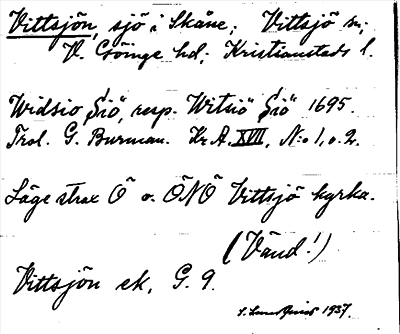 Vittsjön, sjö i Skåne; Vittsjö sn;
V. Göinge hd; Kristianstads l.
Widsio Siö, resp. Witsiö Siö 1695.
Trol. G. Burman. Kr. A. XVII, N:o 1, o. 2.
Läge strax Ö o. ÖNÖ Vittsjö kyrka.
(Vänd!)
Vittsjön ek. G. 9.
1937.